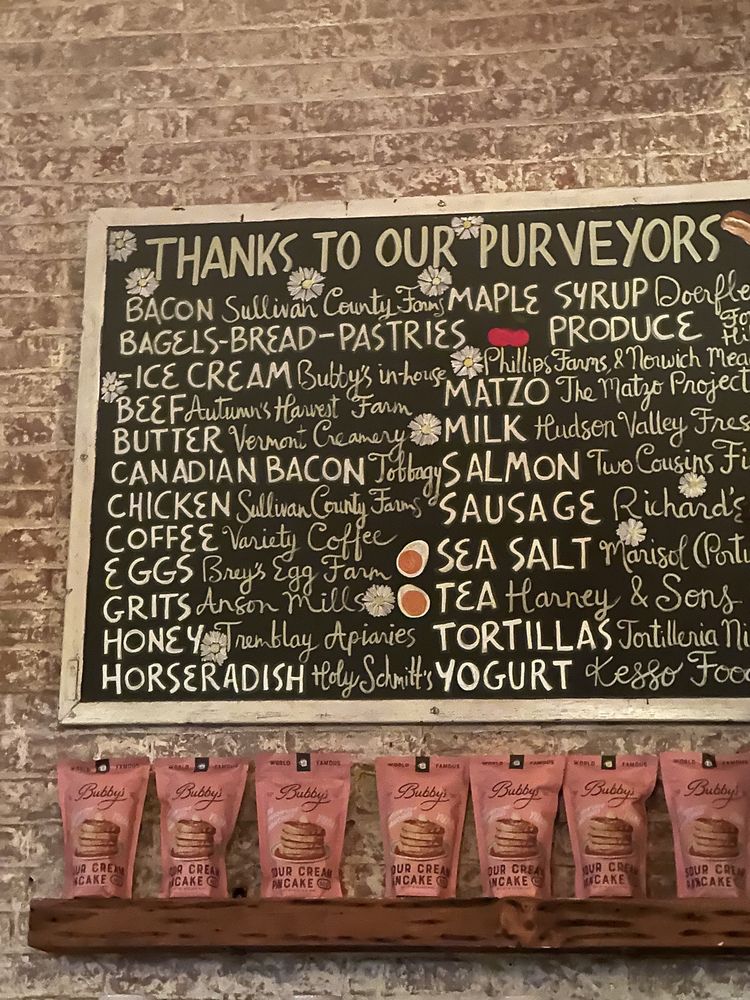 THANKS TO OUR PURVEYORS
BACON Sullivan County Farms
BAGELS-BREAD-PASTRIES
-ICE CREAM Bubby's in-house
BEEF Autumn's Harvest Farm
BUTTER Vermont Creamery
CANADIAN BACON Tobbagy
CHICKEN Sullivan County Farms
COFFEE Variety Coffee
EGGS Brey's Egg Farm
GRITS Anson Mills
HONEY Tremblay Apiaries
HORSERADISH Holy Schmitt's
MAPLE SYRUP Doerfle
PRODUCE
Phillips Farms, & Norwich Mea
MATZO The Matzo Project
MILK Hudson Valley Fres
SALMON Two Cousins Fi
SAUSAGE Richard's
SEA SALT Marisol (Portu
TEA Harney & Sons
TORTILLAS Tortilleria Ni
YOGURT Kesso Foo
WORLD FAMOUS
Bubby's
OUR CREAM
NCAKE
WORLD FAMOUS
Bubby's
OUR CREAM
ANCAKE
WORLD FAMOUS
Bubby's
SOUR CREAM
PANCAKE
WORLD FAMOUS
Bubby's
SOUR CREAM
PANCAKE
WORLD FAMOUS
Bubby's
SOUR CREAM
PANCAKE
WORLD FAMOUS
Bubby's
SOUR CREAM
PANCAKE
WORLD FAMOUS
Bubby's
SOUR CREAM
PANCAKE